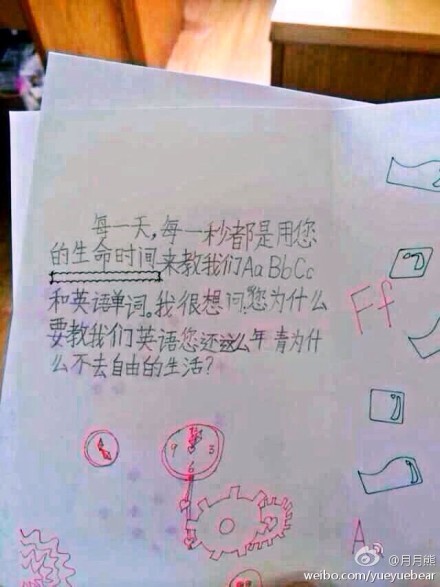 每一天，每一秒都是用您
的生命时间来教我们AaBbCc
和英语单词。我很想问，您为什么
要教我们英语您还这么年青为什
么不去自由的生活？
Ff
9 3
6
A
@月月熊
weibo.com/yueyuebear